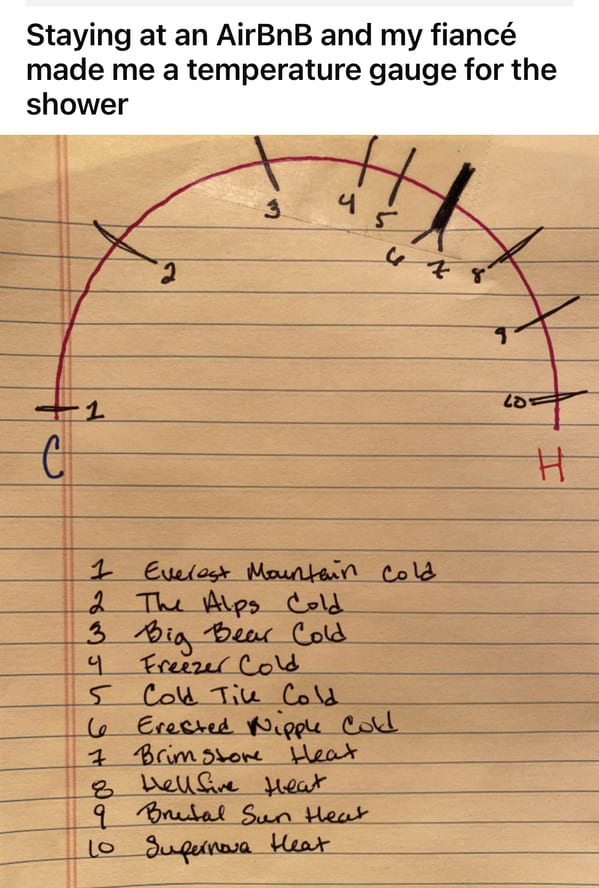 Staying at an AirBnB and my fiancé
made me a temperature gauge for the
shower
3
4
5
6
7
2
8
9
1
10
C
H
1 Everest Mountain Cold
2 The Alps Cold
3 Big Bear Cold
4 Freezer Cold
5 Cold Tile Cold
6 Erected Nipple Cold
7 Brimstone Heat
8 Hellfire Heat
9 Brutal Sun Heat
10 Supernova Heat